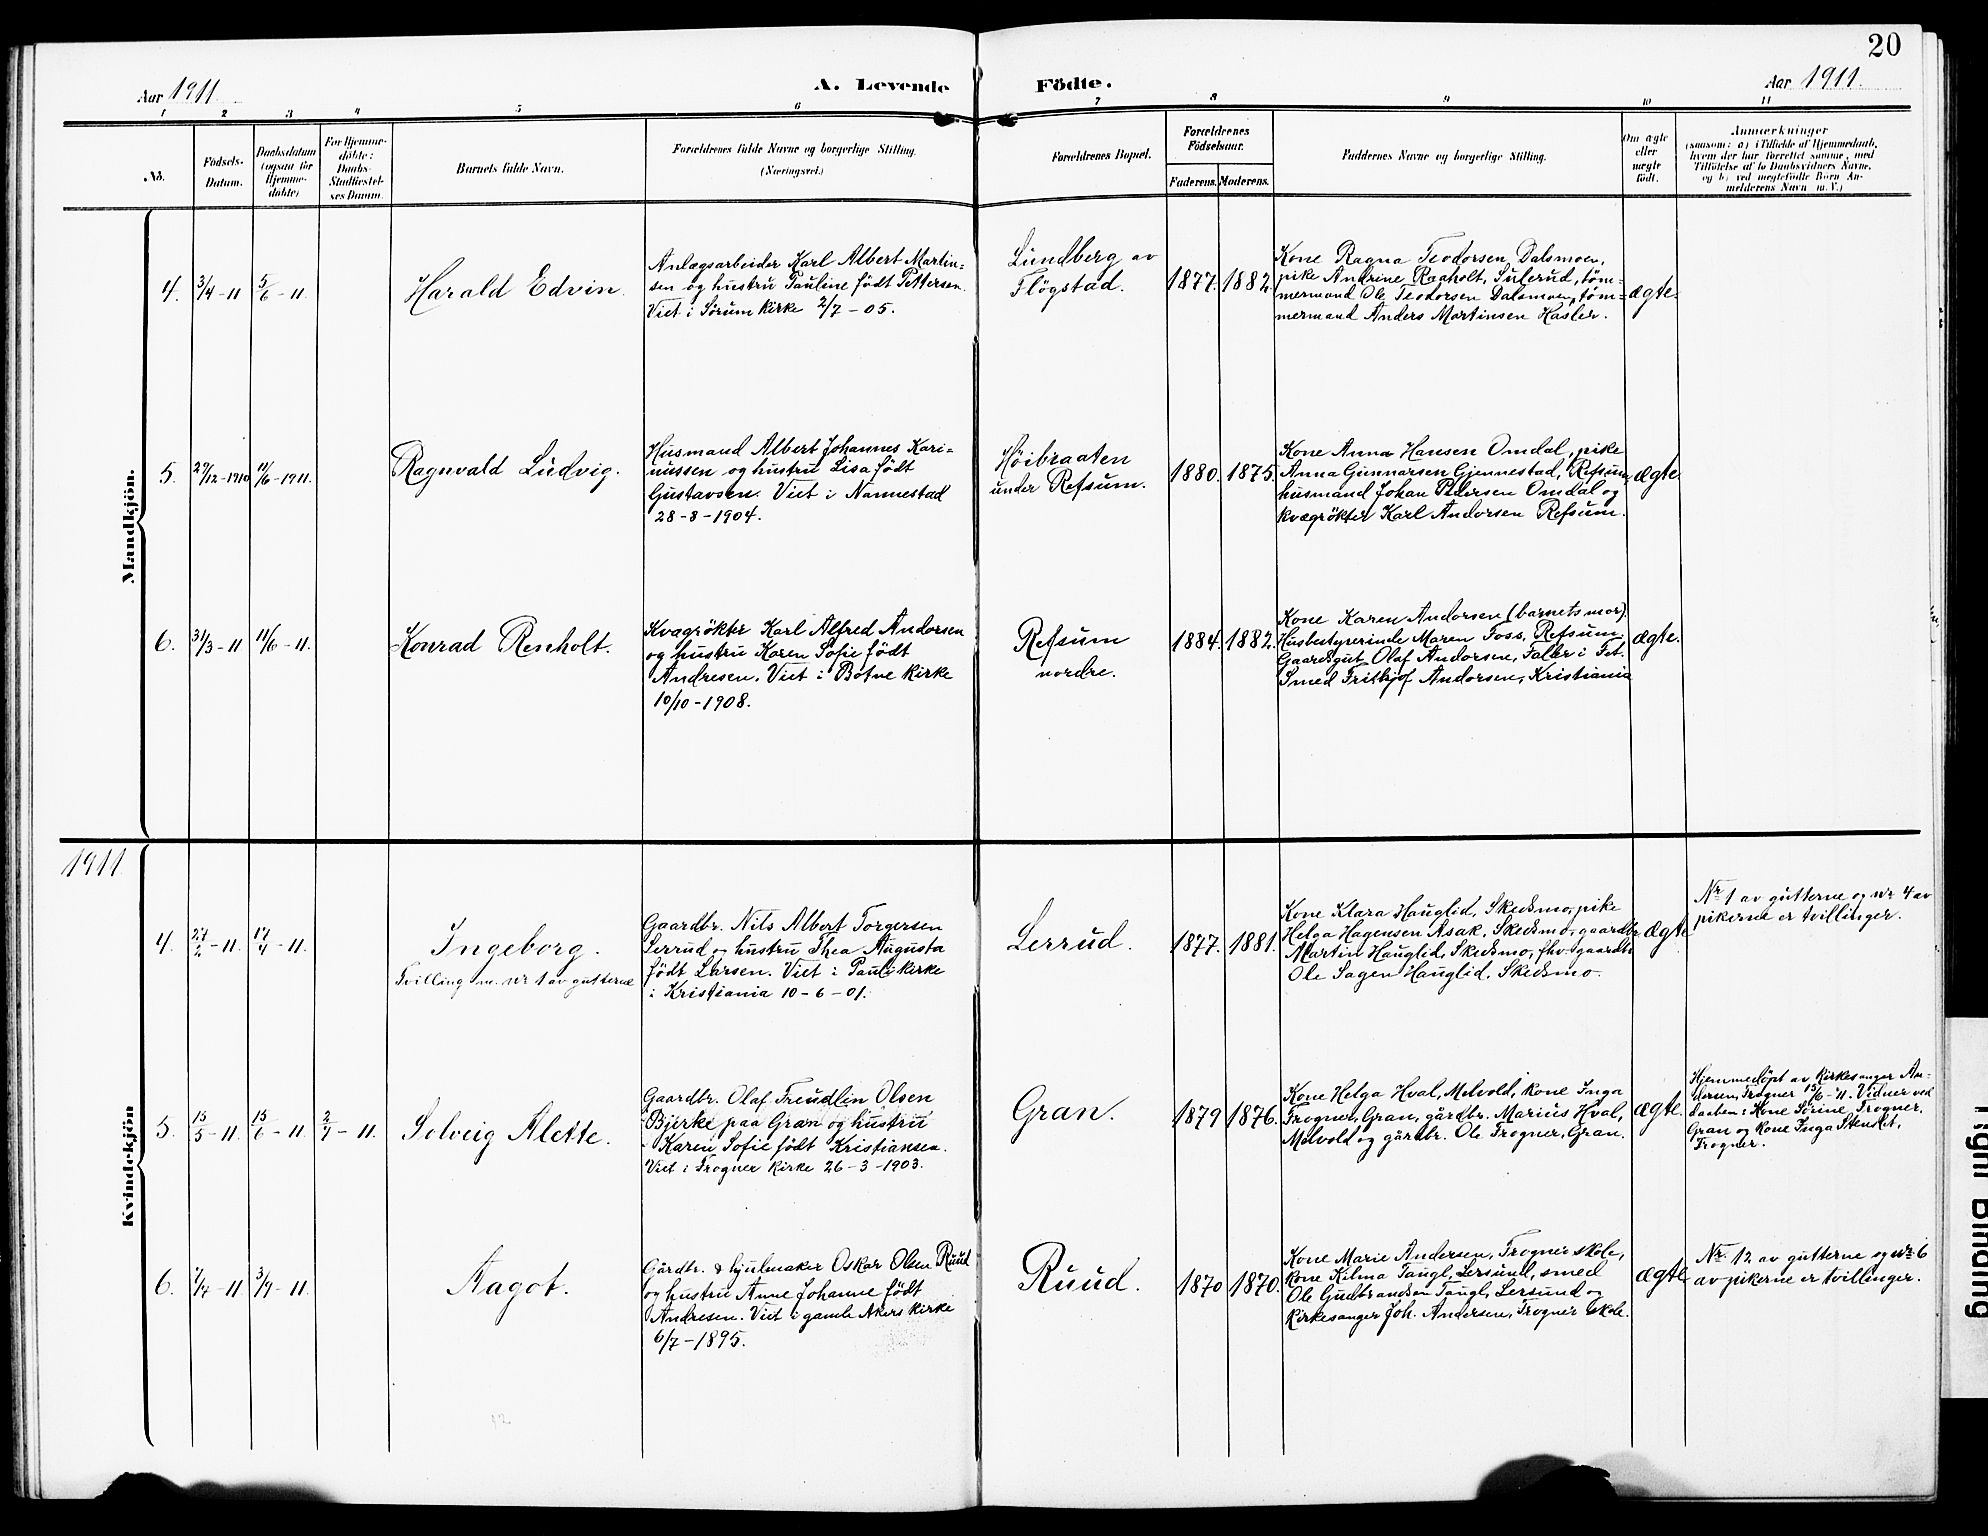 20
Aar 1911.
A. Levende Födte.
Aar 1911.
1 2 3 4 5 6 7 8 9 10 11
No.
Födsels-
Datum.
Daabsdatum
(ogsaa for
Hjemme-
döbte)
For Hjemme-
döbte:
Daabs-
Stadfæstel-
ses Datum.
Barnets fulde Navn.
Forældrenes fulde Navne og borgerlige Stilling.
(Næringsvei.)
Forældrenes Bopæl.
Forældrenes
Födselsaar.
Faderens. Moderens.
Faddernes Navne og borgerlige Stilling.
Om ægte
eller
uægte
födt.
Anmærkninger
(saasom: a) i Tilfælde af Hjemmedaab,
hvem der har forrettet samme, med
Tilföielse af to Daabsvidners Navne,
og b) ved uægtefödte Börn An-
melderens Navn m. V.)
Mandkjön.
4. 3/4 - 11 5/6 - 11.
Harald Edvin.
Anlægsarbeider Karl Albert Martin-
sen og hustru Pauline født Pettersen.
Viet i Sörum kirke 2/7 - 05.
Lundberg av
Flögstad.
1877. 1882
Kone Ragna Teodorsen Dalsmoen,
pike Andrine Raaholt, Sulerud, töm-
mermand Ole Teodorsen Dalsmoen, töm-
mermand Anders Martinsen Hasler.
ægte.
5. 29/12-1910 11/6-1911.
Ragnvald Ludvig.
Husmand Albert Johannes Kari-
nussen og hustru Lisa født
Gustavsen. Viet i Nannestad
28-8-1904.
Høibraaten
under Refsum.
1880. 1875.
Kone Anna Hansen Omdal, pike
Anna Gunnarsen Gjennestad, Refsum,
husmand Johan Pedersen Omdal og
kvægrökter Karl Andorsen Refsum.
ægte.
6. 31/3 - 11 11/6 - 11.
Konrad Renholt.
Kvægrökter Karl Alfred Andorsen
og hustru Karen Sofie født
Andresen. Viet i Botne kirke
10/10 - 1908.
Refsum
nordre.
1884. 1882.
Kone Karen Andorsen (barnets mor).
Husbestyrerinde Maren Foss, Refsum.
Gaardsgut Olaf Andorsen, Faller i Fet.
Smed Fritkjof Andorsen, Kristiania
ægte.
1911
Kvindekjön
4. 27/2 - 11. 17/4 - 11.
Ingeborg.
Tvilling m. nr 1 av gutterne
Gaardbr. Nils Albert Torgersen
Lerrud og hustru Thea Augusta
født Larsen. Viet i Pauls kirke
i Kristiania 10 - 6 - 01.
Lerrud.
1877. 1881.
Kone Klara Hauglid, Skedsmo, pike
Helga Hagensen Asak, Skedsmo, gaardbr.
Martin Hauglid, Skedsmo, fhv. gaardbr.
Ole Sagen Hauglid, Skedsmo.
ægte
Nr 1 av gutterne og nr 4 av
pikerne er tvillinger.
5. 15/5 - 11. 15/6 - 11 2/7 - 11.
Solveig Alette.
Gaardbr. Olaf Freudlin Olsen
Bjerke paa Gran og hustru
Karen Sofie født Kristiansen.
Viet i Frogner kirke 26 - 3 - 1903.
Gran.
1879 1876.
Kone Helga Hval, Melvold, kone Inga
Frogner, Gran, gårdbr. Marius Hval,
Melvold og gårdbr. Ole Frogner, Gran.
ægte.
Hjemmedöpt av kirkesanger An-
dersen, Frogner 15/6 - 11. Vidner ved
daaben: Kone Sörine Frogner,
Gran og kone Inga Stensket,
Frogner.
6. 7/7 - 11 3/9 - 11.
Aagot.
Gårdbr. & hjulmaker Oskar Olsen Ruud
og hustru Anne Johanne født
Andresen. Viet i gamle Akers kirke
6/7 - 1895.
Ruud.
1870 1870.
Kone Marie Andersen, Frogner skole,
kone Kilma Taugl, Lersund, smed
Ole Gudbrandsen Taugl, Lersund og
kirkesanger Joh. Andersen, Frogner skole.
ægte
Nr. 12 av gutterne og nr. 6
av pikerne er tvillinger.
Tight Binding